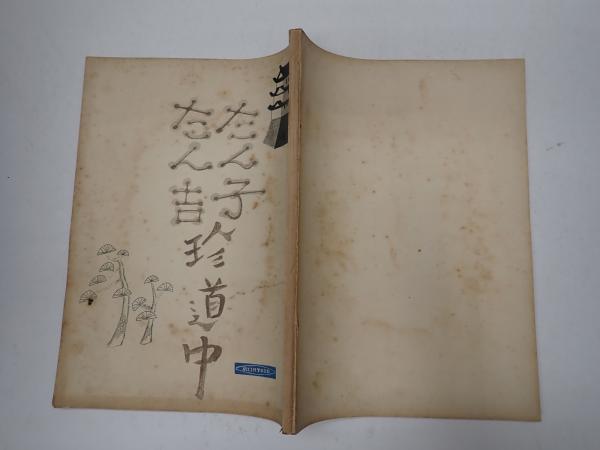 たん子
たん吉
珍道中